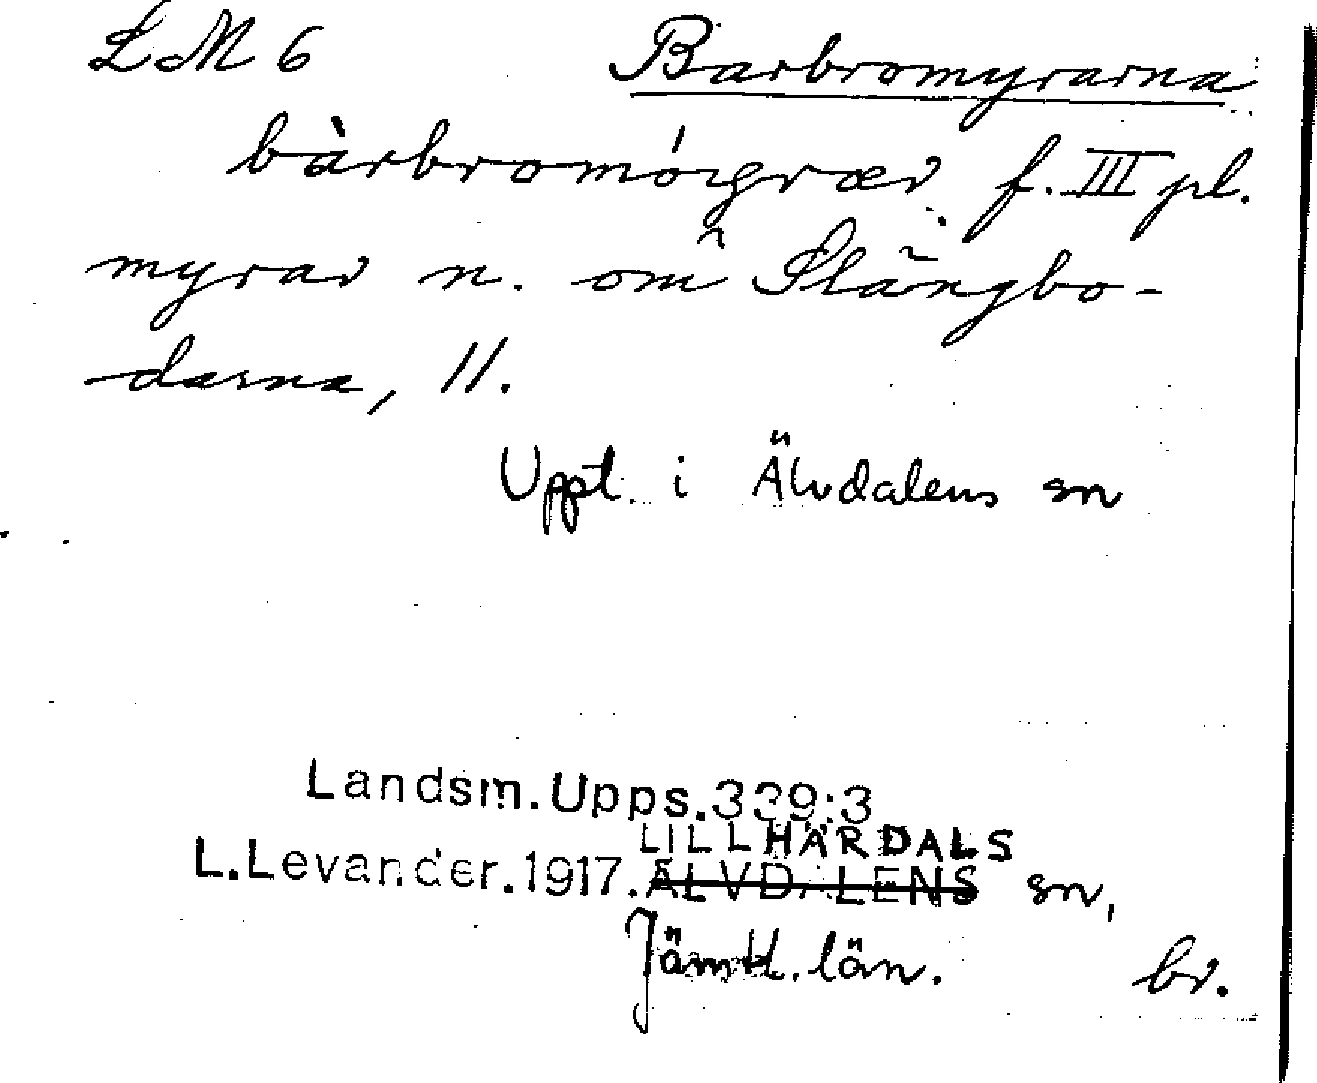 LM 6 Barbromyrarna
bàrbromógræv f. III pl.
myrar n. om Slängbo-
darna, 11.
Uppt. i Älvdalens sn
Landsm.Upps.339:3
LILLHÄRDALS
L.Levander.1917. ÄLVDALENS sn,
Jämtl. län. br.